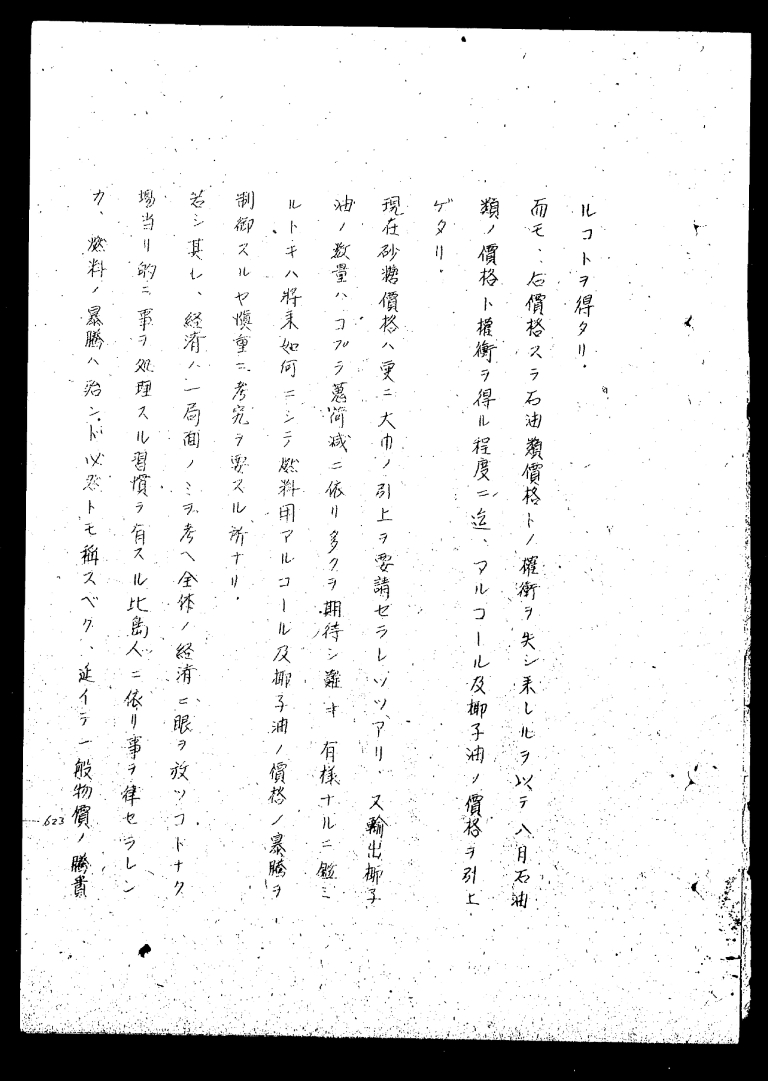 ルコトヲ得タリ.
而モ、右價格スラ石油類價格トノ權衡ヲ失シ来レルヲ以テ八月石油
類ノ價格ト權衡ヲ得ル程度ニ迄、アルコール及椰子油ノ價格ヲ引上
ゲタリ.
現在砂糖價格ハ更ニ大巾ノ引上ヲ要請セラレツツアリ、又輸出椰子
油ノ数量ハコプラ蒐荷減ニ依リ多クヲ期待シ難キ有様ナルニ鑑ミ
ルトキハ將来如何ニシテ燃料用アルコール及椰子油ノ價格ノ暴騰ヲ
制御スルヤ愼重ニ考究ヲ要スル所ナリ.
若シ其レ、経済ノ一局面ノミヲ考ヘ全体ノ経済ニ眼ヲ放ツコトナク
場当リ的ニ事ヲ処理スル習慣ヲ有スル比島人ニ依リ事ヲ律セラレン
カ、燃料ノ暴騰ハ殆ンド必然トモ稱スベク、延イテ一般物價ノ騰貴
623